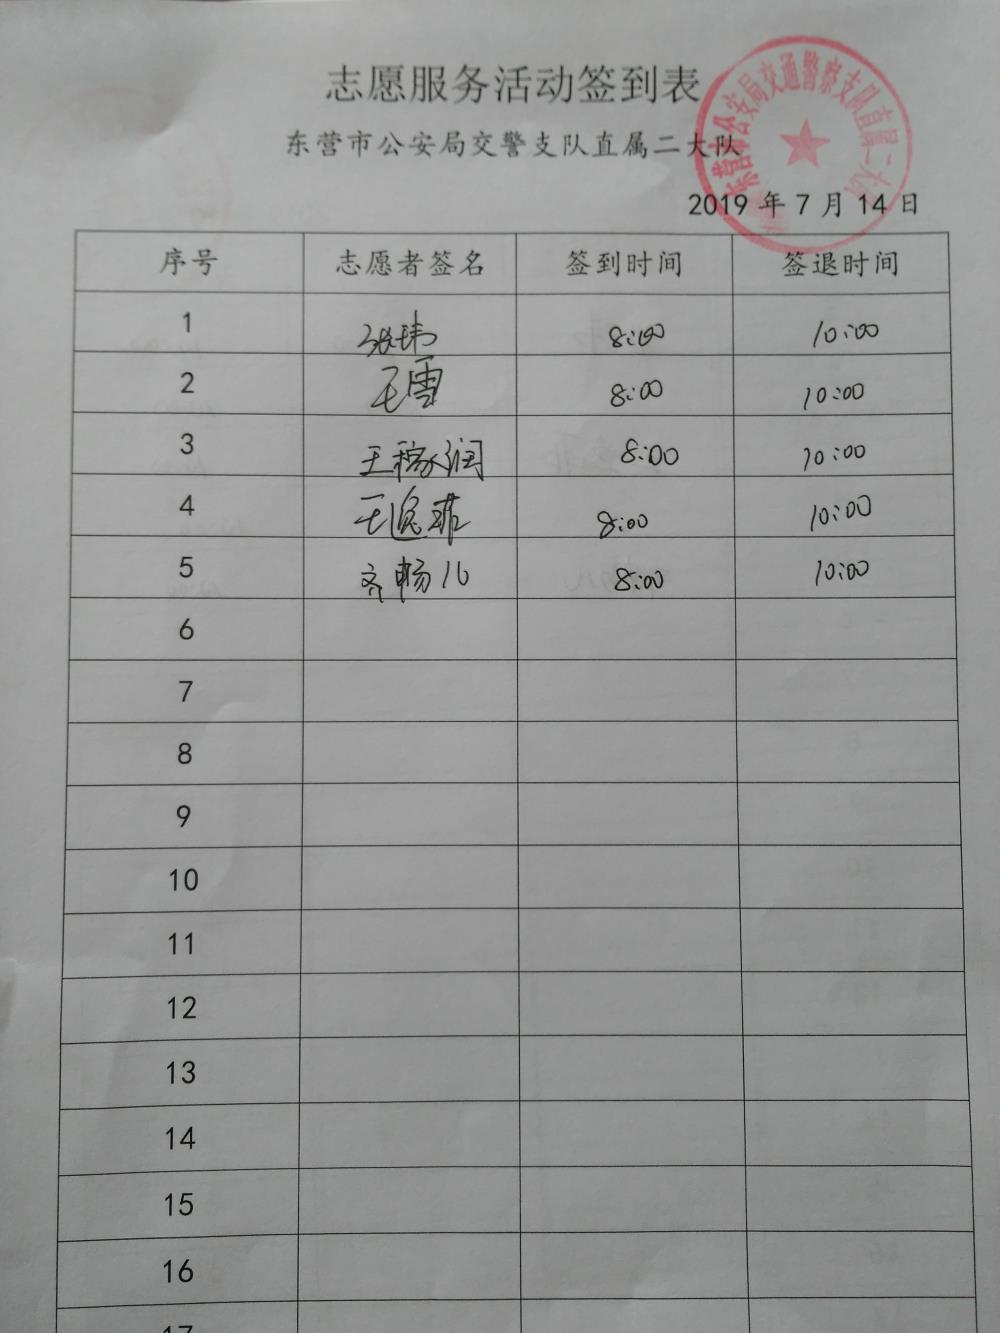 志愿服务活动签到表
东营市公安局交警支队直属二大队
东营市公安局交通警察支队直属二大队
2019 年 7 月 14 日
序号 志愿者签名 签到时间 签退时间
1 张玮 8:00 10:00
2 王雪 8:00 10:00
3 王稼润 8:00 10:00
4 王逸菲 8:00 10:00
5 齐畅儿 8:00 10:00
6
7
8
9
10
11
12
13
14
15
16
17